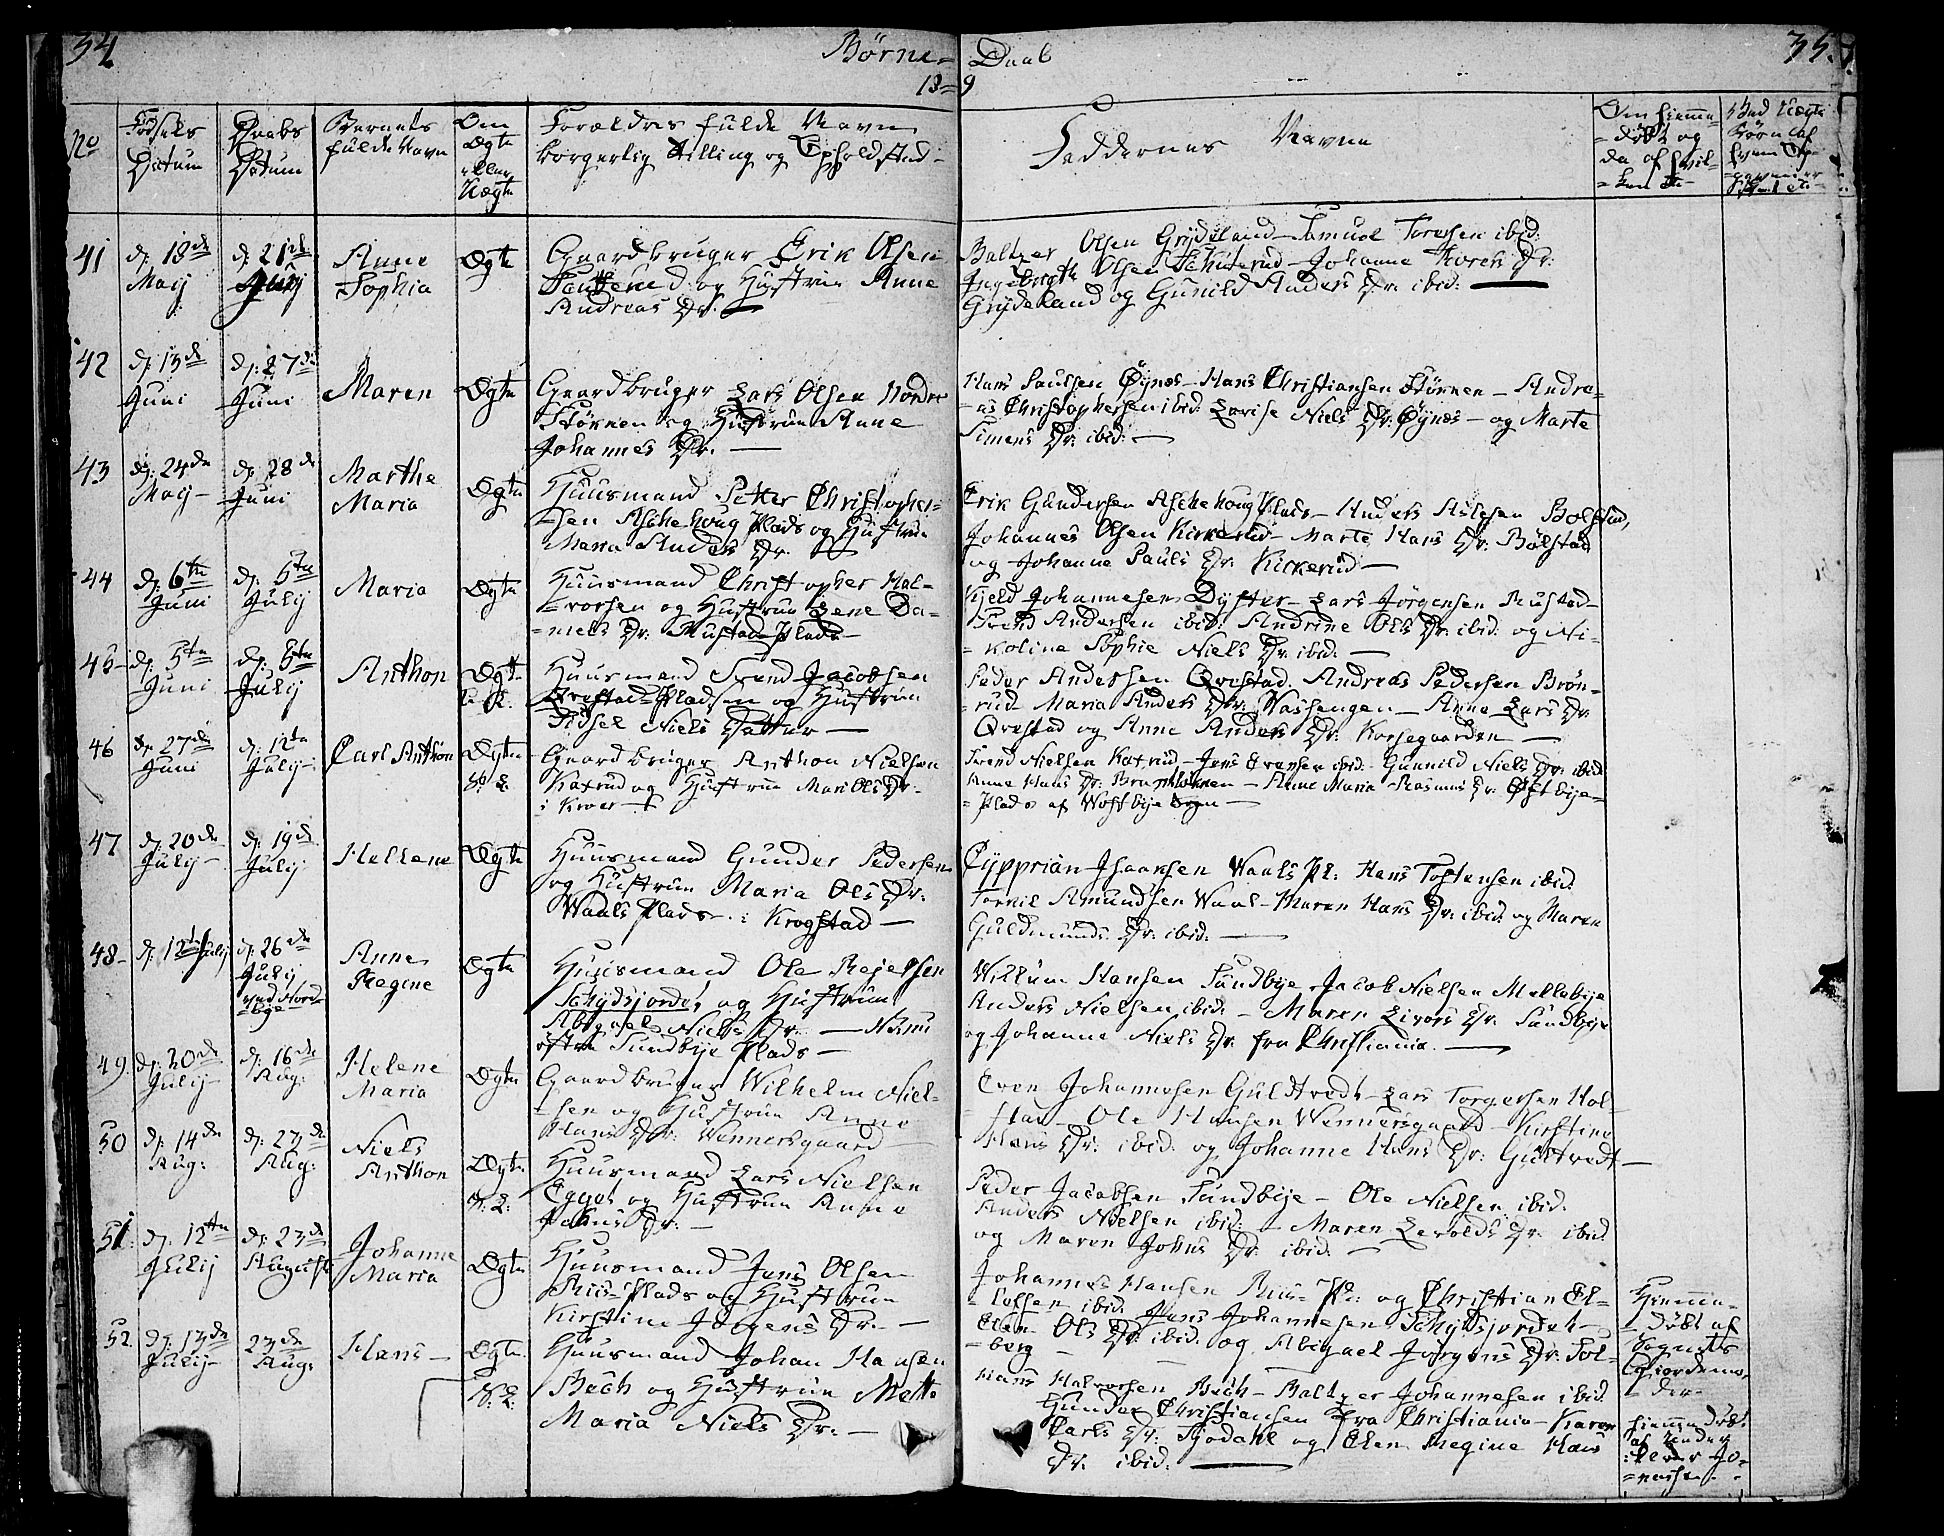 34
Børne=
Daab
35.
18=
9
No
Fødsels
Datum
Daabs
Datum
Barnets
fulde Navn
Om
Ægte
eller
Uægte
Forældres fulde Navn
borgerlig Stilling og Opholdsted-
Faddernes Navne
Om hiemme-
=døbt og
da af hvil-
=ken
Ved Uægte
Børn
41
d: 18de
Maij
d: 21de
Anne
Sophia
Ægte
Gaardbruger Erik Olsen
og Hustrue Anne
Andreas Dr.
Baltzer Olsen Grydeland - Samuel Toresen ibid:
Ingebregth Olsen Johanne Dr:
Grydeland og Gunild Anders Dr. ibid:
42
d: 13de
Juni
d: 27de
Juni
Maren
Ægte
Gaardbruger Lars Olsen Nordre
Størnen og Hustrue Anne
Johannes Dr.
Hans Paulsen Øynes - Hans Christiansen Størnen - Andre-
=as Christophersen ibid: Lovise Niels Dr: Øynes - og Marte
Simens Dr: ibid: -
43
d: 24de
Maij -
d: 28de
Juni
Marthe
Maria
Ægte
Huusmand Petter Christopher-
=sen Aschehoug Plads og Hustrue
Maria Anders Dr
Erik Gundersen Aschehoug Plads - Anders Bølstad,
Johannes Olsen Kirkerud - Marte Hans Dr: Bølstad
og Johanne Pauls Dr: Kirkerud -
44
d: 6te
Juni
d: 5te
Julij
Maria
Ægte
Huusmand Christopher Hal-
=vorsen og Hustrue Lene Da-
=niels Dr: Rustad Plads -
Kield Johannesen Dyster - Lars Jørgensen Rustad -
Trend Andersen ibid: Andrine Ols Dr: ibid: og Ni-
=koline Sophie Niels Dr: ibid: -
45 -
d: 5te
Juni
d: 8te
Julij
Anthon
Ægte
Huusmand Svend Jacobsen
Qvestad Pladsen og Hustrue
Sidsel Niels Datter -
Peder Andersen Qvestad. Andreas Pedersen Brøn-
=rud Maria Anders Dr: - Anne Lars Dr
Qvestad og Anne Anders Dr: Korsegaarden -
46
d: 27de
Juni
d: 12te
Julij -
Carl Anthon
Ægte
Gaardbruger Anthon Nielsen
Katrud og Hustrue Mari Ols Dr.
i Kroer -
Trend Nielsen Katrud - Jens Evensen ibid: Gunnild Niels Dr: ibid
Anne Hans Dr: - Anne Maria Rasmus Dr: Østbye-
=Plads af Westbye
47
d: 20de
Julij -
d: 19de
Julij
Hellene
Ægte
Huusmand Gunder Pedersen
og Hustrue Maria Ols Dr:
Waals Plads - i Krogstad -
Cypprian Isaaksen Waals Pl: Hans Tostensen ibid:
Torkil Amundsen Waal - Maren Hans Dr: ibid: og Maren
Guldmunds Dr: ibid: -
48 -
d: 12te Julij
d: 26de
Julij
ved Nord-
=bye
Anne
Regine
Ægte
Huusmand Ole Rejersen
Schydsjordet og Hustrue
Abigael Niels Dr: -
østre Sundbye Plads -
Willum Hansen Sundbye - Jacob Nielsen Mellebye
Anders Nielsen ibid: - Maren Livors Dr: Sundbye
og Johanne Niels Dr. fra Christiania. -
49
d: 20de
Julij -
d: 16de
Aug:
Helene
Maria
Ægte
Gaardbruger Wilhelm Niel-
=sen og Hustrue Anne
Hans Dr: Wennersgaard
Even Johannesen Gulstvedt - Lars Torgersen Hol-
=stad - Ole Hansen Wennersgaard - Kirstine
Hans Dr: ibid: og Johanne Hans Dr: Gulstvedt -
50
d: 14de
Aug:
d: 23de
Aug:
Niels
Anthon
Ægte
Huusmand Lars Nielsen
Egget og Hustrue Anne
Johns Dr: -
Peder Jacobsen Sundbye - Ole Nielsen ibid:
Anders Nielsen ibid: - Maren Levolds Dr: ibid
og Maren Johns Dr: ibid: -
51
d: 12te
Julij
d: 23de
August
Johanne
Maria
Ægte
Huusmand Jens Olsen
Riis-Plads og Hustrue
Kirstine Jørgens Dr: -
Johannes Hansen Riis-Pl: og Christian El-
=lefsen ibid: Hans Johannesen Schydsjordet -
Elen Ols Dr: ibid: og Abigael Jørgens Dr: Sol-
=berg -
Hiemme-
=døbt af
Sognets
Giordemo-
=der -
52
d: 13de
Julij -
23de
Aug:
Hans -
Ægte
Huusmand Johan Hansen
Bech og Hustrue Mette
Maria Niels Dr: -
Hans Halvorsen Bech - Baltzer Johannesen ibid:
Gunder Christiansen fra Christiania - Karen
Carls Dr: Fjodahl og Elen Regine Hans
Dr: ibid: -
hiemmedøbt
af